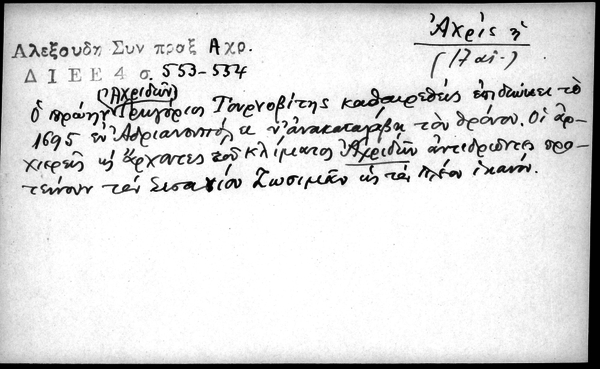 Ἀχρίς ἡ
(17 αἰ.)
Αλεξουδη Συν προξ Αχρ.
Δ Ι Ε Ε 4 σ. 553-554
(Ἀχριδῶν)
Ὁ πρώην Γρηγόριος Τουρνοβίτης καθαιρεθείς ἐπιδιώκει τὸ
1695 ἐν Ἀδριανουπόλει ν' ἀνακαταλάβῃ τὸν θρόνον. Οἱ ἀρ-
χιερεῖς κ̣ ἄρχοντες τοῦ κλίματος Ἀχριδῶν ἀντιδρῶντες προ-
τείνουν τὸν Σισανίου Ζωσιμᾶν ὡς τὸν πλέον ἱκανόν.